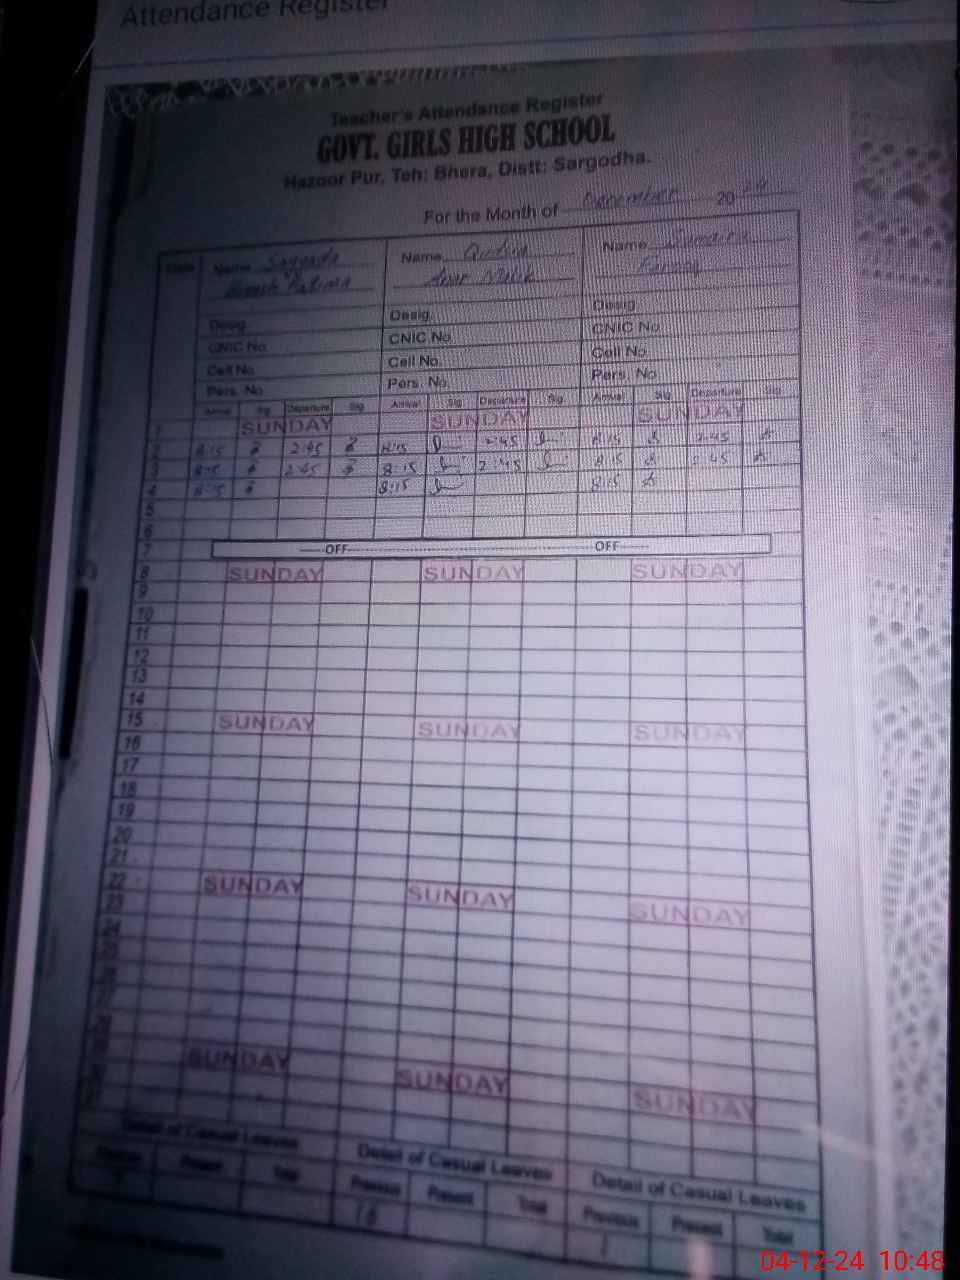 Attendance Register
Teacher's Attendance Register
GOVT. GIRLS HIGH SCHOOL
Hazoor Pur, Teh: Bhera, Distt: Sargodha.
For the Month of December 2024
Date Name Name Name Sumaira
Fatima Malik Farooq
Desig. Desig. Desig.
CNIC No. CNIC No. CNIC No.
Cell No. Cell No. Cell No.
Pers. No. Pers. No. Pers. No.
Arrival Sig Departure Sig Arrival Sig Departure Sig Arrival Sig Departure Sig
1 SUNDAY SUNDAY SUNDAY
2 8:15 2:45 8:15 2:45 8:15 2:45
3 8:15 2:45 8:15 2:45 8:15 2:45
4 8:15 8:15 8:15
5
6
7 OFF OFF
8 SUNDAY SUNDAY SUNDAY
9
10
11
12
13
14
15 SUNDAY SUNDAY SUNDAY
16
17
18
19
20
21
22 SUNDAY SUNDAY SUNDAY
23
24
25
26
SUNDAY SUNDAY SUNDAY
Detail of Casual Leaves Detail of Casual Leaves Detail of Casual Leaves
Previous Present Total Previous Present Total Previous Present Total
04-12-24 10:48